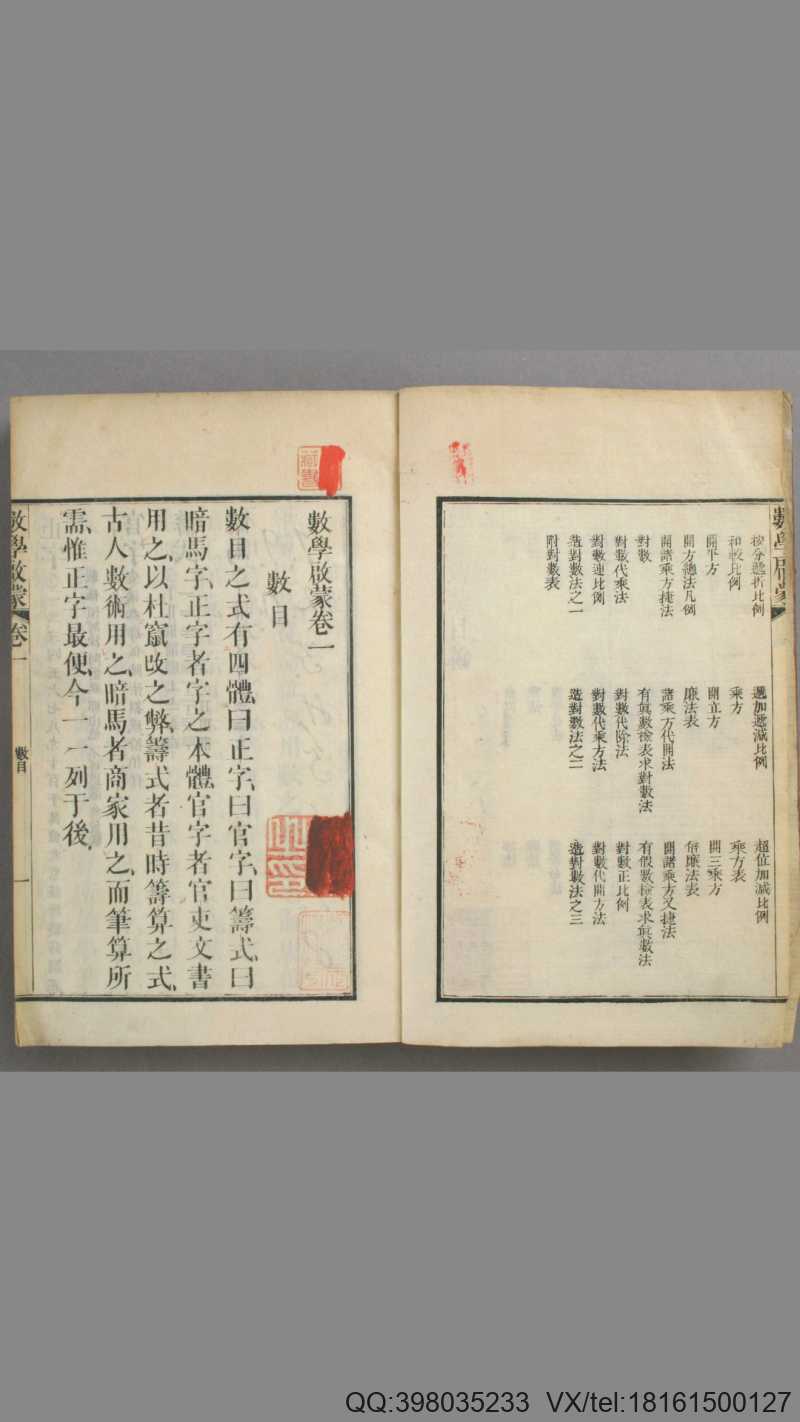 數學啟蒙
按分遞折比例 遞加遞減比例 超位加減比例
和較比例 乘方 乘方表
開平方 開立方 開三乘方
開方總法凡例 廉法表 倍廉法表
開諸乘方捷法 諸乘方代開法 開諸乘方又捷法
對數 有眞數檢表求對數法 有假數檢表求眞數法
對數代乘法 對數代除法 對數正比例
對數連比例 對數代乘方法 對數代開方法
造對數法之一 造對數法之二 造對數法之三
附對數表
數學啟蒙卷一
數目
數目之式有四體、曰正字、曰官字、曰籌式、曰
暗馬字、正字者字之本體、官字者官吏文書
用之、以杜竄改之弊、籌式者昔時籌算之式、
古人數術用之、暗馬者商家用之、而筆算所
需、惟正字最便、今一一列于後、
數學啟蒙 卷一 數目 一
藏書
QQ:398035233 VX/tel:18161500127